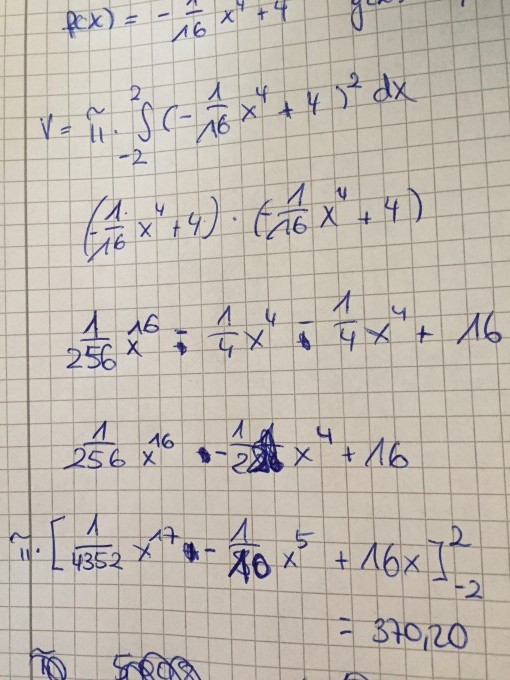 f(x) = - 1/16 x⁴ + 4
V = π · ∫₋₂² (- 1/16 x⁴ + 4)² dx
(- 1/16 x⁴ + 4) · (- 1/16 x⁴ + 4)
1/256 x¹⁶ - 1/4 x⁴ - 1/4 x⁴ + 16
1/256 x¹⁶ - 1/2 x⁴ + 16
π · [ 1/4352 x¹⁷ - 1/10 x⁵ + 16x ]₋₂²
= 370,20